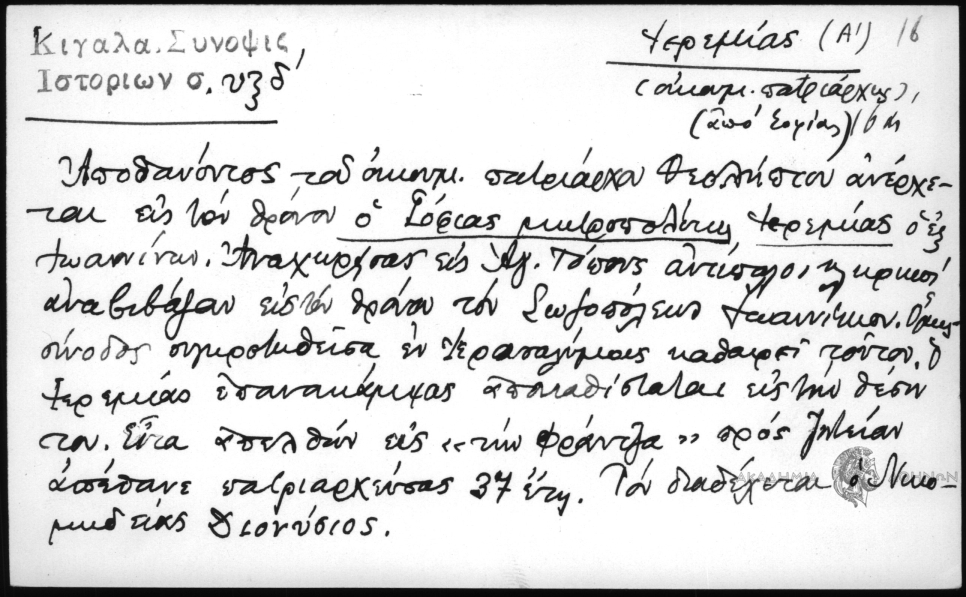 Κιγαλα. Συνοψις,
Ιστοριων σ. υξδ΄
Ἱερεμίας (Α') 16
(οἰκουμ. πατριάρχης),
(ἀπό Σοφίας)
Ἀποθανόντος τοῦ οἰκουμ. πατριάρχου Θεολήπτου ἀνέρχε-
ται εἰς τόν θρόνον ὁ Σόφιας μητροπολίτης Ἱερεμίας ὁ ἐξ
Ἰωαννίνων. Ἀναχωρήσας εἰς Ἁγ. Τόπους ἀντίπαλοι κληρικοί
ἀναβιβάζουν εἰς τόν θρόνον τόν Σωζοπόλεως Ἰωαννίκιον. Ὅμως
σύνοδος συγκροτηθεῖσα ἐν Ἱεροσολύμοις καθαιρεῖ τοῦτον. ὁ
Ἱερεμίας ἐπανακάμψας ἀποκαθίσταται εἰς τήν θέσιν
του. Εἶτα ἀπελθών εἰς «τήν Φράντζα» πρός ζητείαν
ἀπέθανε πατριαρχεύσας 37 ἔτη. Τόν διαδέχεται ὁ Νικο-
μηδείας Διονύσιος.
ΑΚΑΔΗΜΙΑ ΑΘΗΝΩΝ